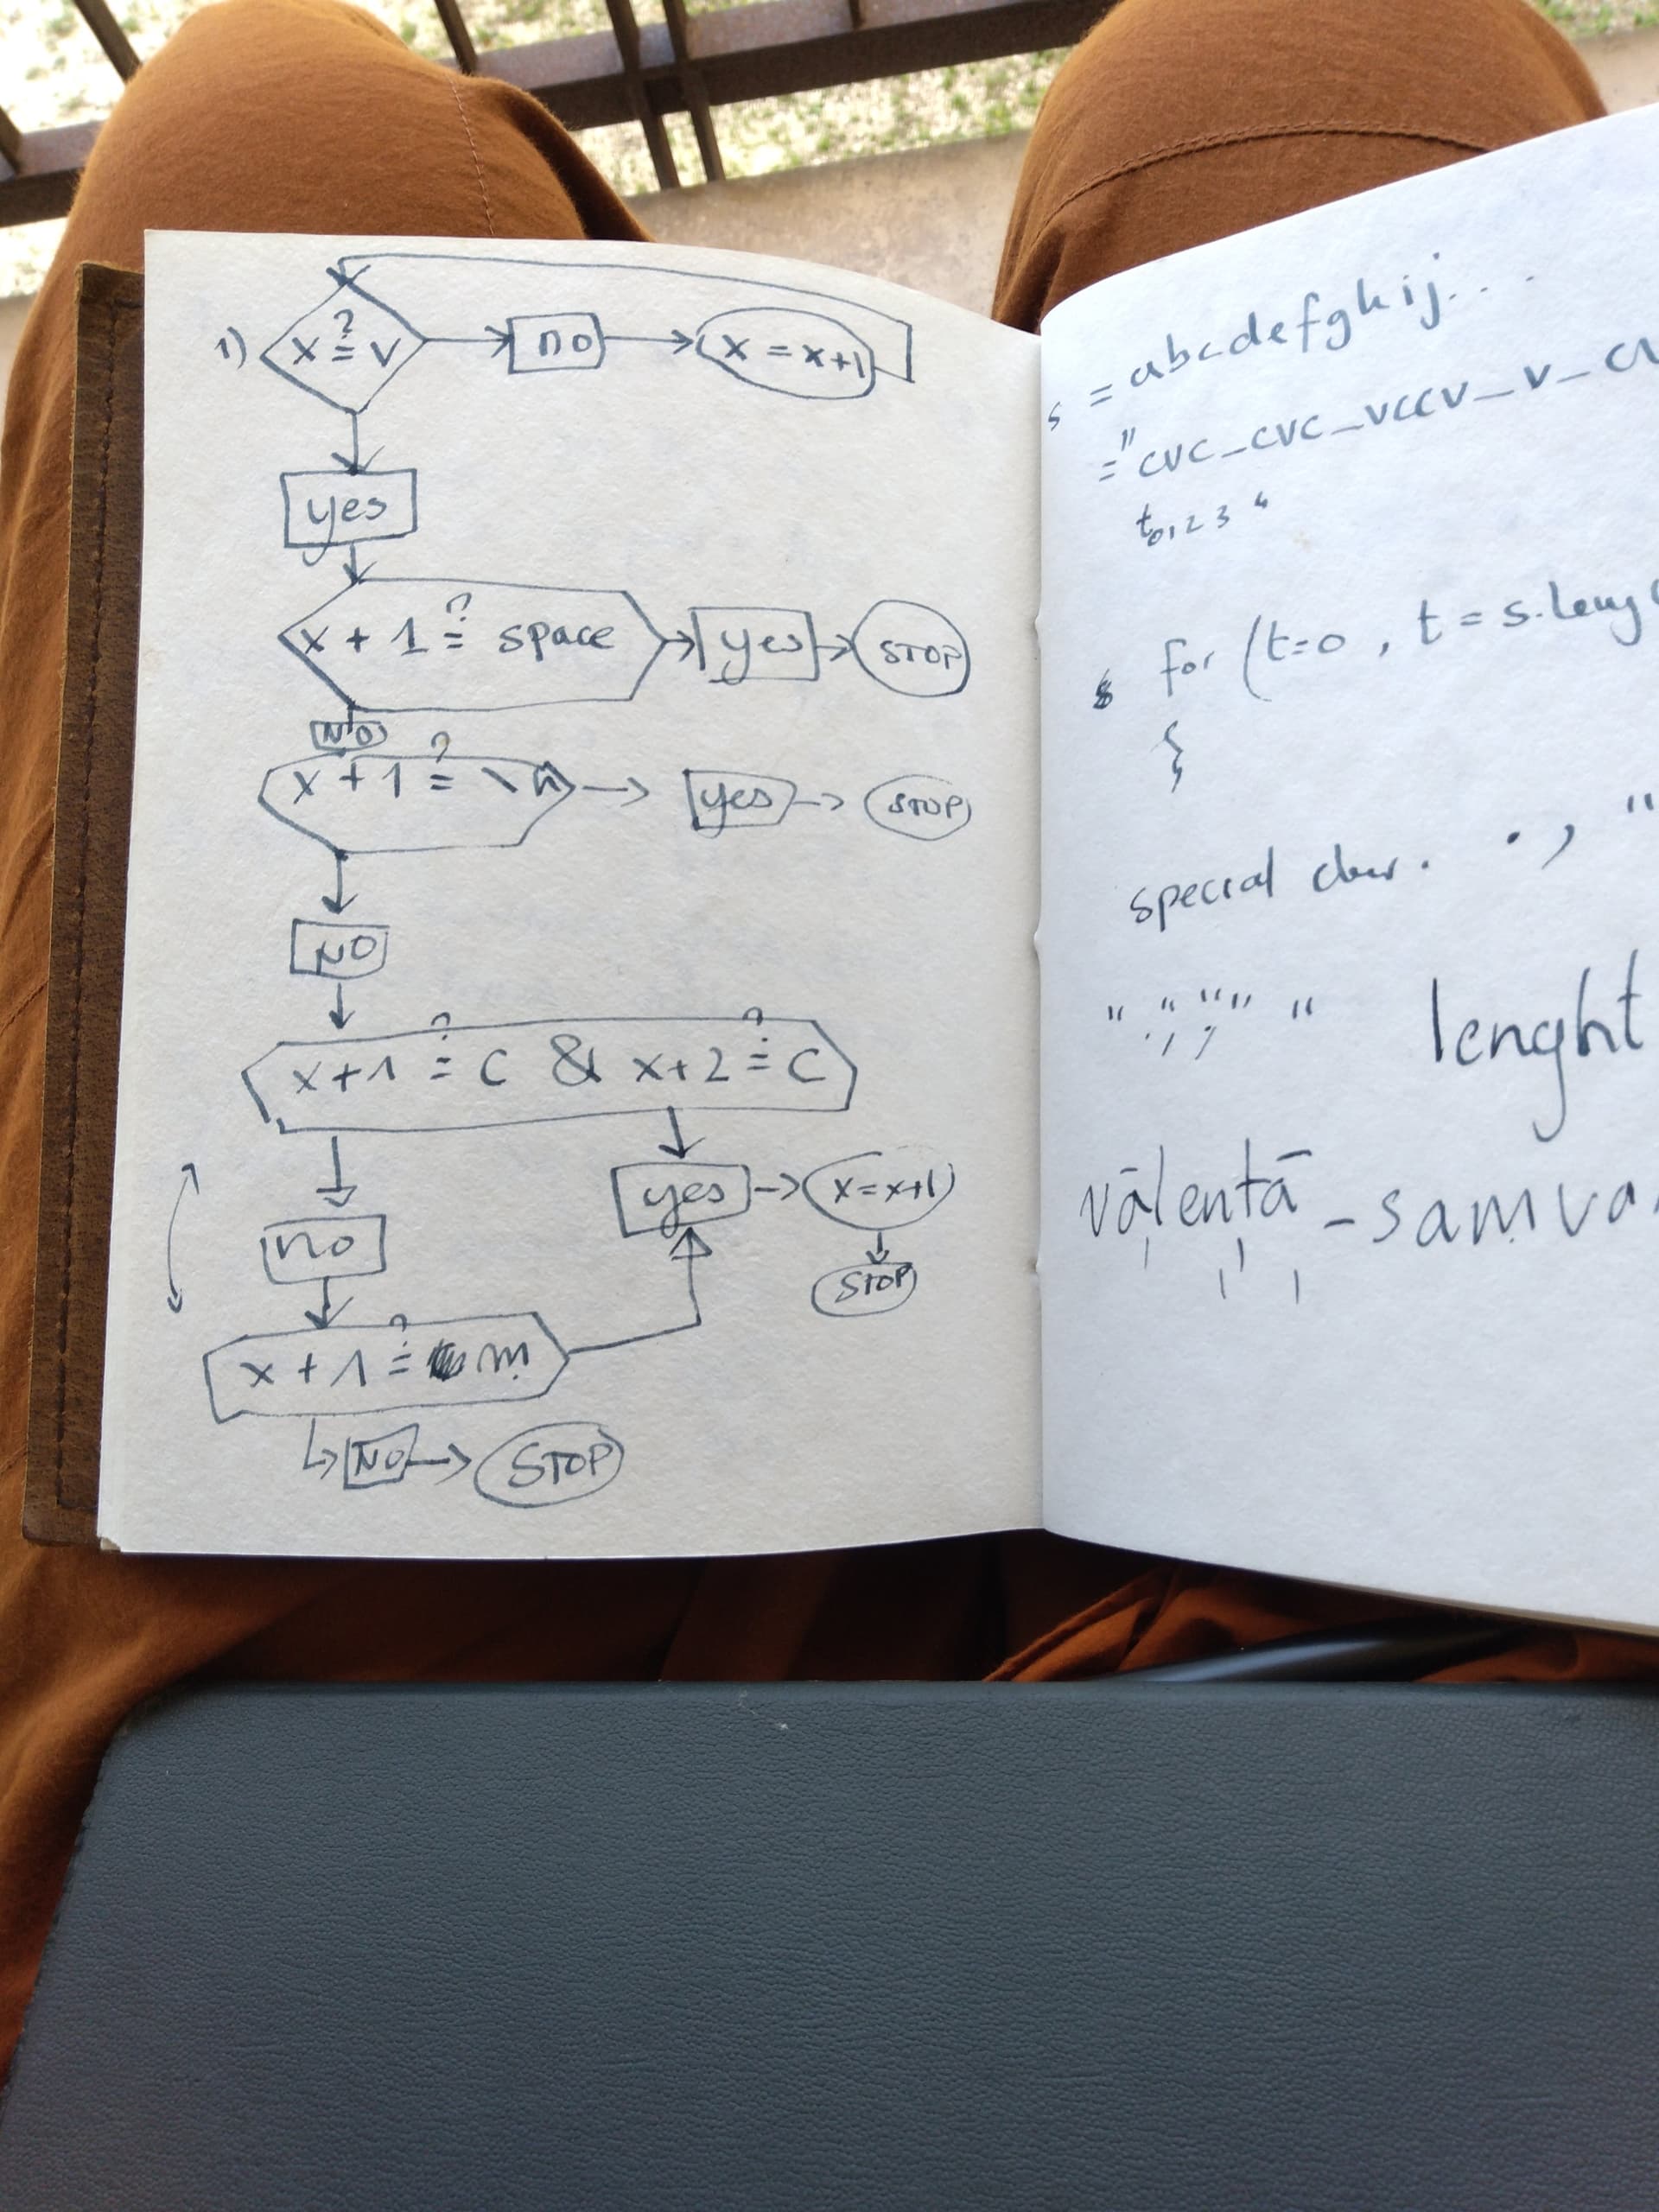 1) x ≟ v → no → x = x+1
yes
x + 1 ≟ space → yes → STOP
NO
x + 1 ≟ \n → yes → STOP
NO
x+1 ≟ C & x+2 ≟ C
yes → x=x+1
no
STOP
x + 1 ≟ ṃ
NO → STOP
s = abcdefghij...
= "CVC_CVC_VCCV_V_
t0123 4
for (t=0 , t = s.leng
}
special char. . , "
" . , ; " " "
lenght
vālentā - saṃva